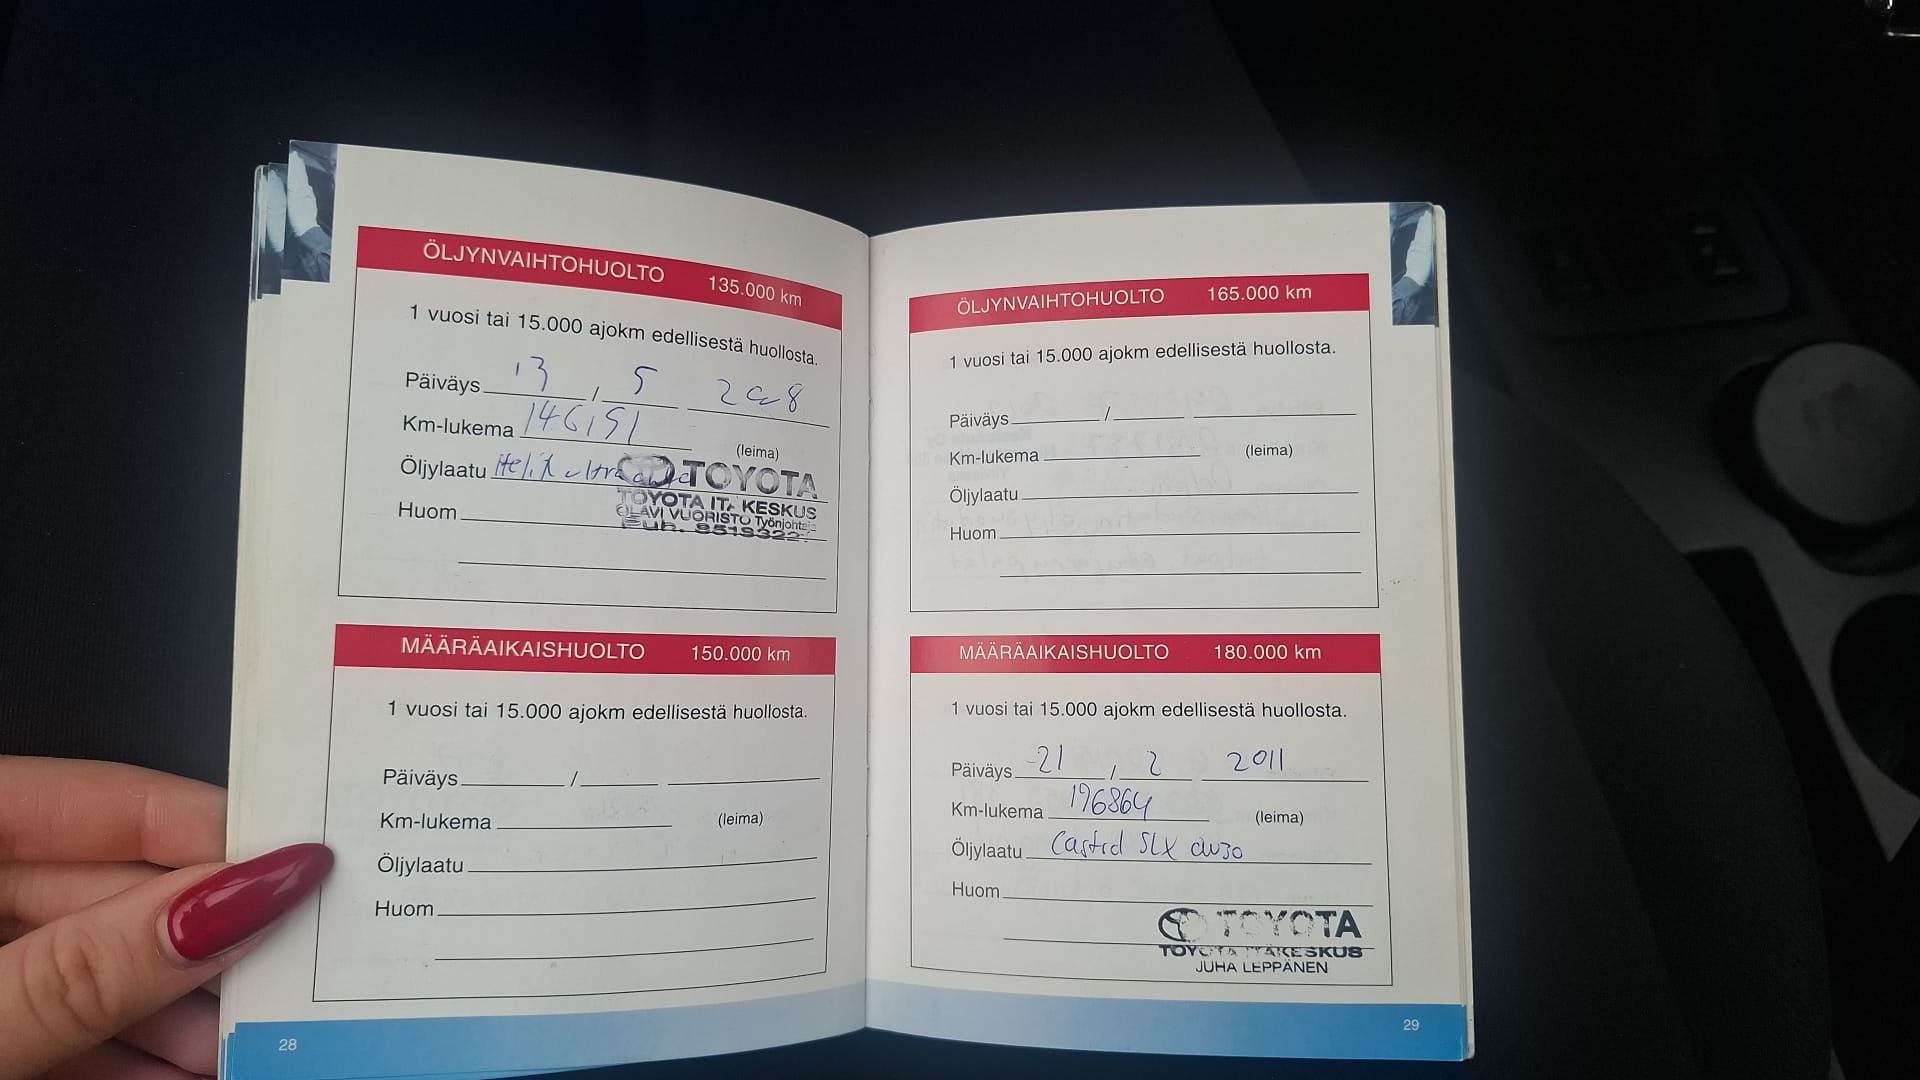 ÖLJYNVAIHTOHUOLTO 135.000 km
1 vuosi tai 15.000 ajokm edellisestä huollosta.
Päiväys 13 / 5 2008
Km-lukema 146151
(leima)
Öljylaatu Helix ultra
TOYOTA
TOYOTA ITÄKESKUS
Huom
OLAVI VUORISTO Työnjohtaja
Puh.
MÄÄRÄAIKAISHUOLTO 150.000 km
1 vuosi tai 15.000 ajokm edellisestä huollosta.
Päiväys /
Km-lukema (leima)
Öljylaatu
Huom
28
ÖLJYNVAIHTOHUOLTO 165.000 km
1 vuosi tai 15.000 ajokm edellisestä huollosta.
Päiväys /
Km-lukema (leima)
Öljylaatu
Huom
MÄÄRÄAIKAISHUOLTO 180.000 km
1 vuosi tai 15.000 ajokm edellisestä huollosta.
Päiväys 21 / 2 2011
Km-lukema 196864 (leima)
Öljylaatu Castrol SLX 0W30
Huom
TOYOTA
TOYOTA ITÄKESKUS
JUHA LEPPÄNEN
29